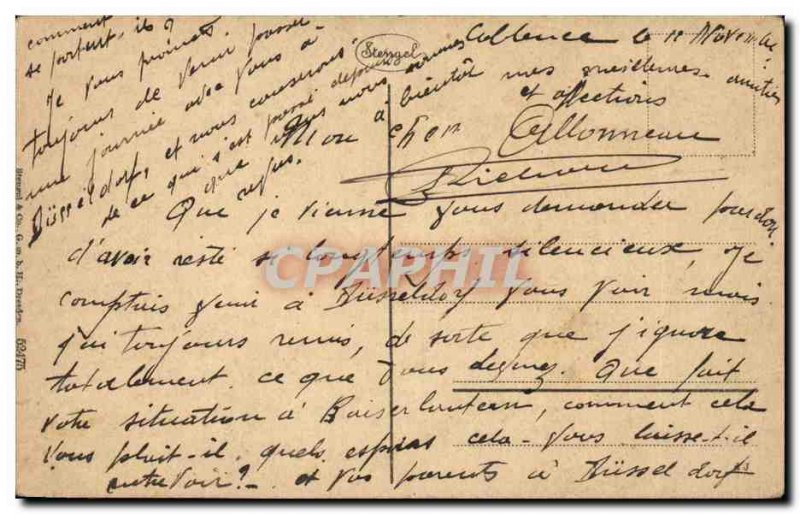 Coblence le 11 Novembre
Mon cher Allonneau
Que je vienne vous demander pardon
d'avoir resté si longtemps silencieux, je
comptais venir à Düsseldorf vous voir mais
j'ai toujours remis, de sorte que j'ignore
totalement ce que vous devenez. Que fait
votre situation à Kaiserlautern, comment cela
vous plait-il, quels espoirs cela vous laisse-t-il
entrevoir? - et vos parents à Düsseldorf
comment
se portent-ils?
Je vous promets
toujours de venir passer
une journée avec vous à
Düsseldorf, et nous causerons
de ce qui s'est passé depuis
que nous nous sommes
vus.
à bientôt mes meilleures amitiés
et affections
Stengel
Stengel & Co., G. m. b. H., Dresden 52475
CPAPHIL